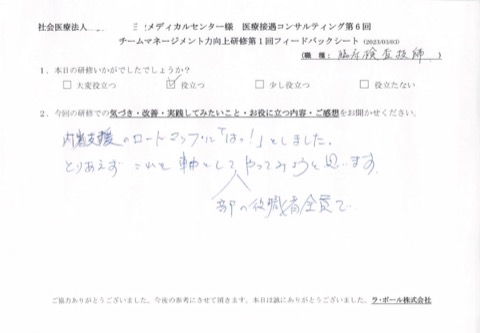 社会医療法人 ミメディカルセンター様 医療接遇コンサルティング第6回
チームマネージメント力向上研修第1回フィードバックシート (2023/03/03)
(職 種: 臨床検査技師 )
1.本日の研修いかがでしたでしょうか?
□ 大変役立つ ☑ 役立つ □ 少し役立つ □ 役立たない
2.今回の研修での気づき・改善・実践してみたいこと・お役に立つ内容・ご感想をお聞かせください。
支援のロードマップに「はっ!」としました。
とりあえず これを軸としてやってみようと思います。
部の役職者全員で…
ご協力ありがとうございました。今後の参考にさせて頂きます。本日は誠にありがとうございました。ラ・ポール株式会社